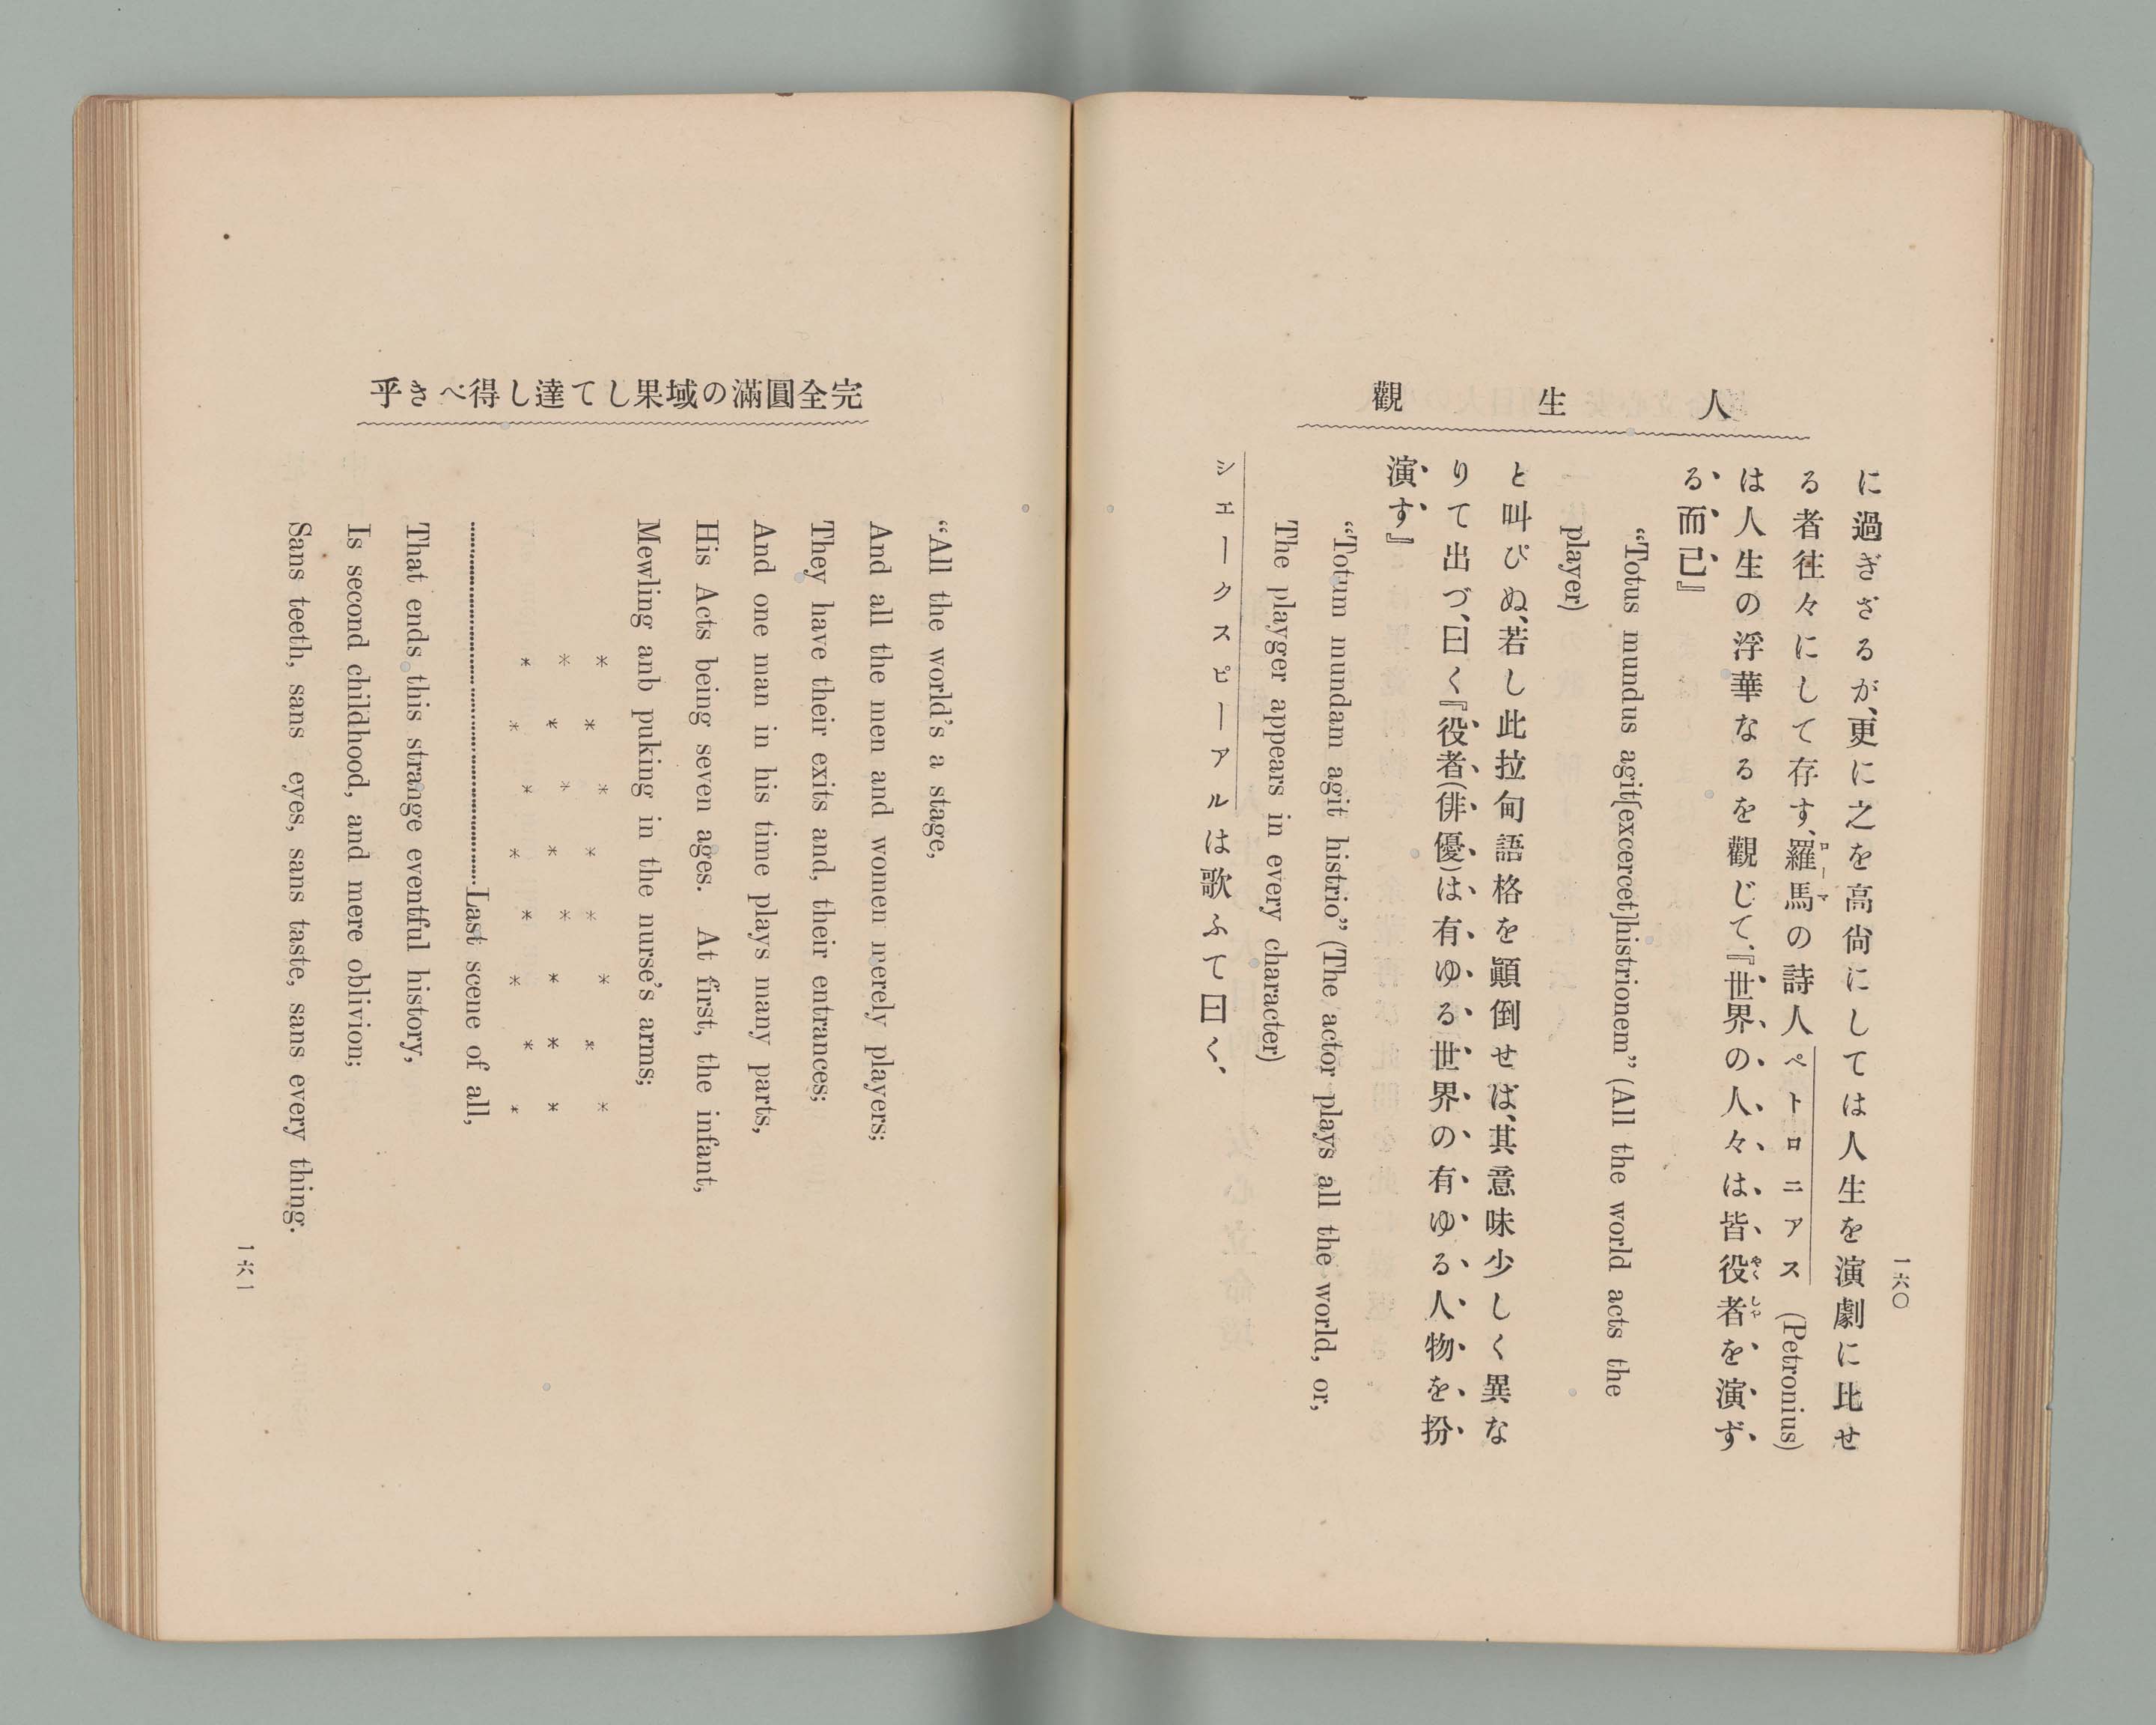 人生觀
一六〇
に過ぎざるが、更に之を高尙にしては人生を演劇に比せ
る者往々にして存す、羅馬の詩人ペトロニアス (Petronius)
は人生の浮華なるを觀じて、『世界の人々は皆役者を演ず
る而已』
“Totus mundus agit[excercet]histrionem” (All the world acts the
player)
と叫びぬ、若し此拉甸語格を顚倒せば、其意味少しく異な
りて出づ、曰く『役者(俳優)は有ゆる世界の有ゆる人物を扮
演す』
“Totum mundam agit histrio” (The actor plays all the world, or,
The playger appears in every character)
シェークスピーアルは歌ふて曰く、
完全圓滿の域果して達し得べき乎
“All the world’s a stage,
And all the men and women merely players;
They have their exits and, their entrances;
And one man in his time plays many parts,
His Acts being seven ages. At first, the infant,
Mewling anb puking in the nurse’s arms;
* * * * * * * *
* * * * * * * *
* * * * * * * *
........................................Last scene of all,
That ends this strange eventful history,
Is second childhood, and mere oblivion;
Sans teeth, sans eyes, sans taste, sans every thing.
一六一